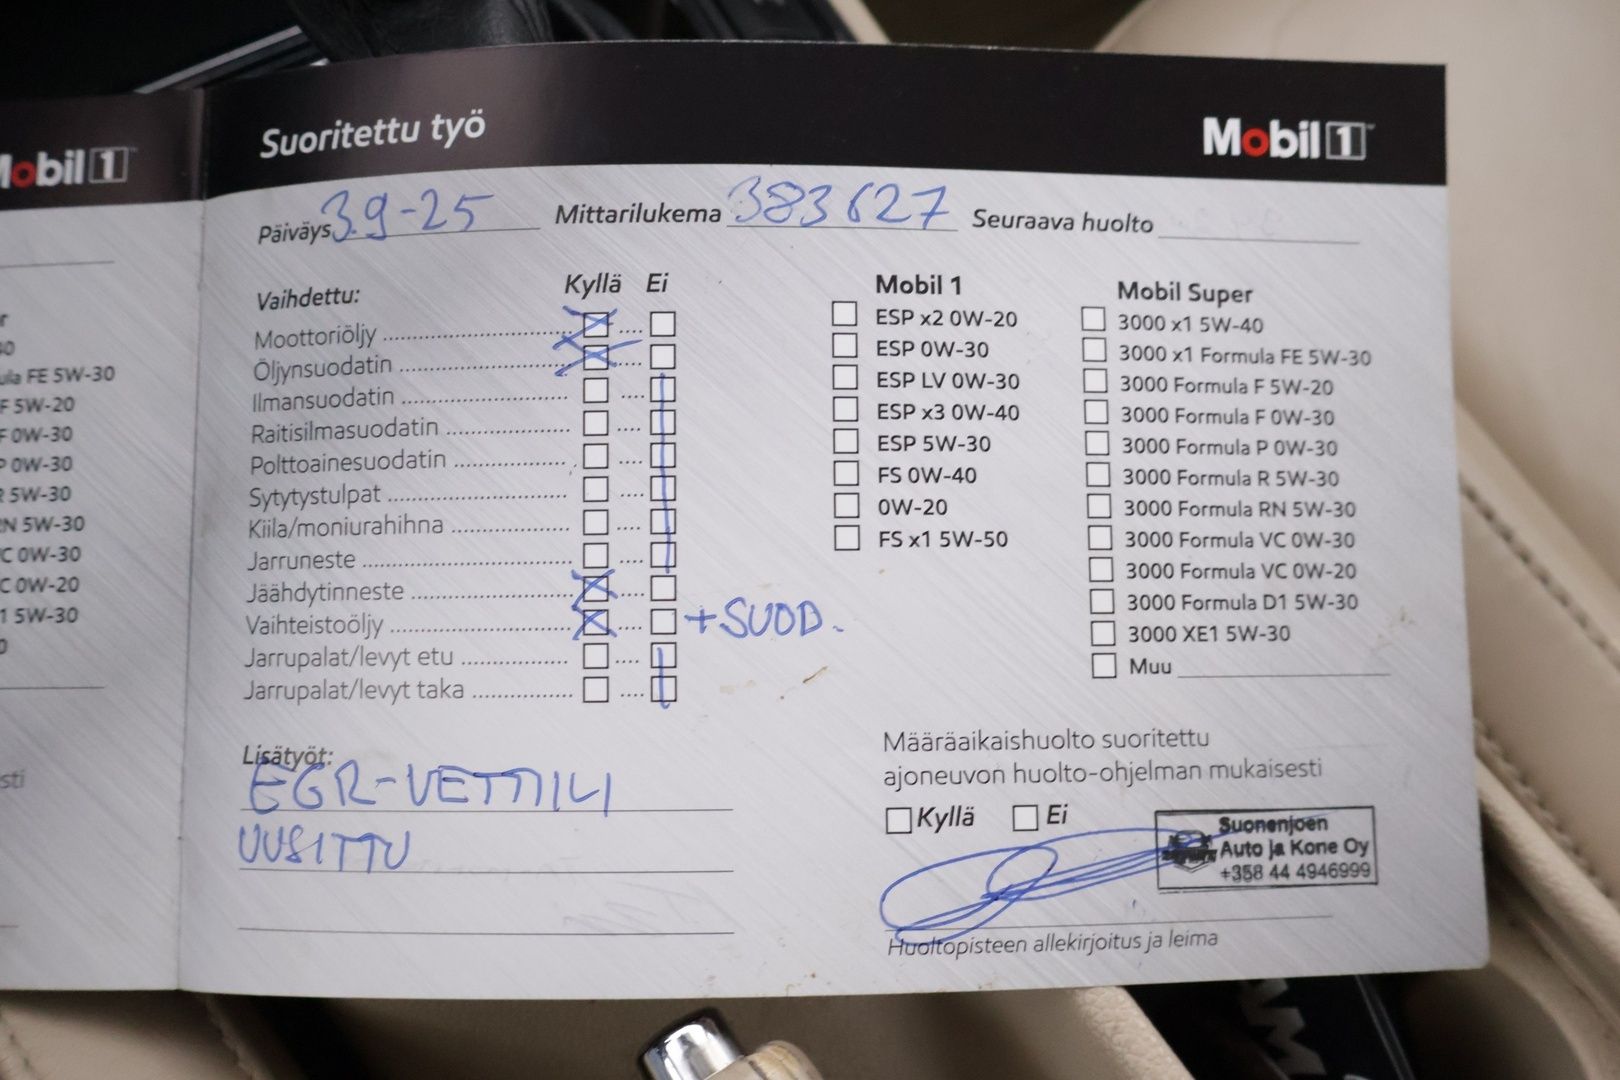 Mobil 1
Suoritettu työ
Mobil 1
Päiväys 3.9-25 Mittarilukema 383627 Seuraava huolto
Vaihdettu: Kyllä Ei
Moottoriöljy
Öljynsuodatin
Ilmansuodatin
Raitisilmasuodatin
Polttoainesuodatin
Sytytystulpat
Kiila/moniurahihna
Jarruneste
Jäähdytinneste
Vaihteistoöljy +SUOD.
Jarrupalat/levyt etu
Jarrupalat/levyt taka
Mobil 1
ESP x2 0W-20
ESP 0W-30
ESP LV 0W-30
ESP x3 0W-40
ESP 5W-30
FS 0W-40
0W-20
FS x1 5W-50
Mobil Super
3000 x1 5W-40
3000 x1 Formula FE 5W-30
3000 Formula F 5W-20
3000 Formula F 0W-30
3000 Formula P 0W-30
3000 Formula R 5W-30
3000 Formula RN 5W-30
3000 Formula VC 0W-30
3000 Formula VC 0W-20
3000 Formula D1 5W-30
3000 XE1 5W-30
Muu
Lisätyöt:
EGR-VETTIILI
UUSITTU
Määräaikaishuolto suoritettu
ajoneuvon huolto-ohjelman mukaisesti
Kyllä Ei
Suonenjoen
Auto ja Kone Oy
+358 44 4946999
Huoltopisteen allekirjoitus ja leima
FE 5W-30
F 5W-20
F 0W-30
P 0W-30
R 5W-30
RN 5W-30
VC 0W-30
VC 0W-20
1 5W-30